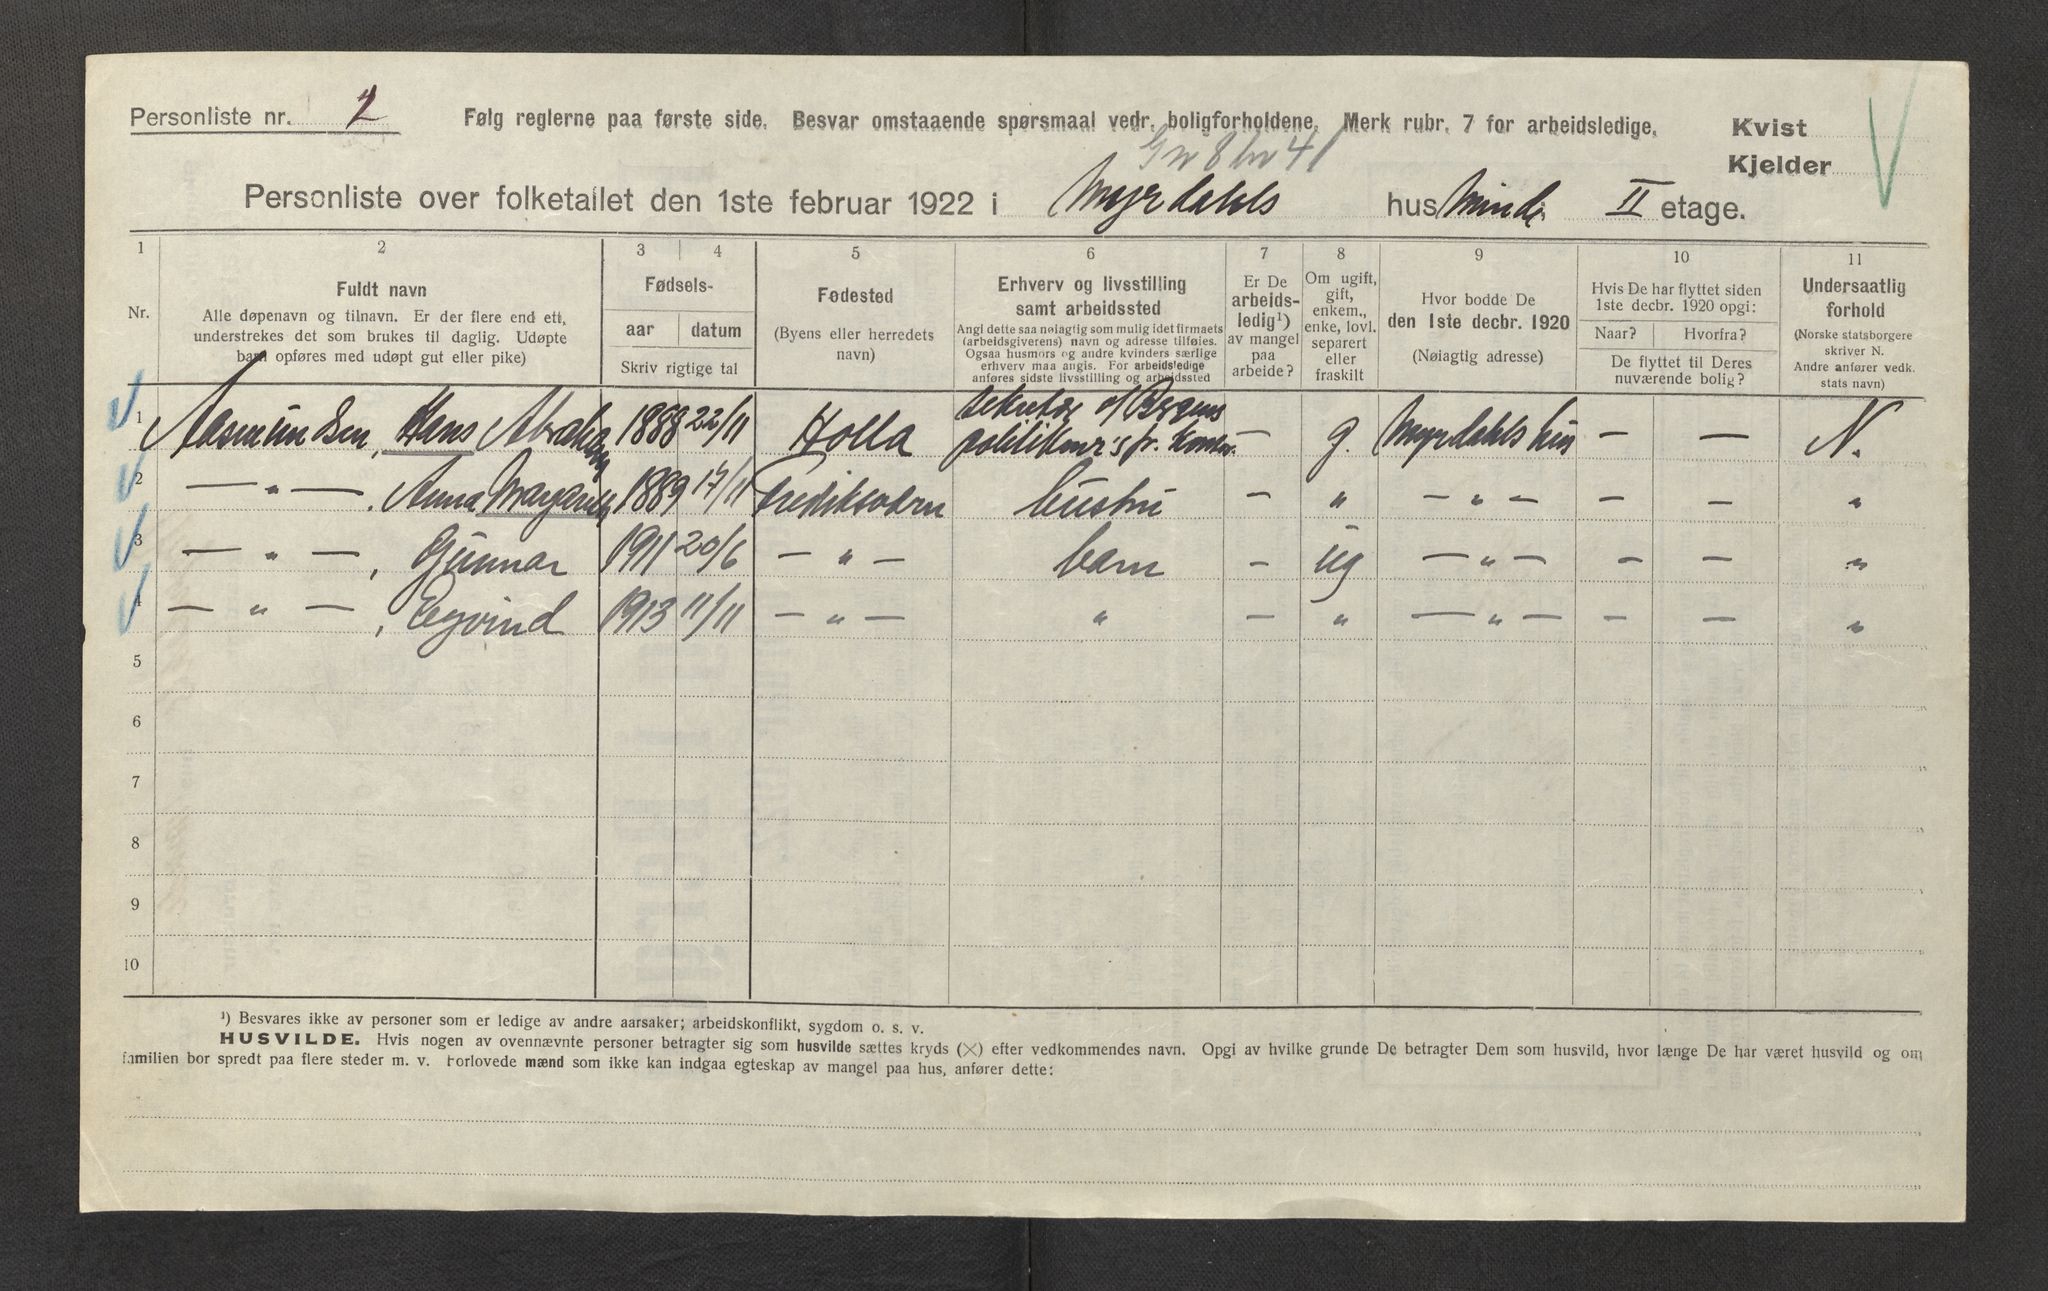 Personliste nr. 2 Følg reglerne paa første side. Besvar omstaaende spørsmaal vedr. boligforholdene. Merk rubr. 7 for arbeidsledige. Kvist
Gnr 8 bnr 41
Kjelder
Personliste over folketallet den 1ste februar 1922 i Myrdahls hus Minde II etage.
1 2 3 4 5 6 7 8 9 10 11
Nr.
Fuldt navn
Alle døpenavn og tilnavn. Er der flere end ett,
understrekes det som brukes til daglig. Udøpte
barn opføres med udøpt gut eller pike)
Fødsels-
aar datum
Skriv rigtige tal
Fødested
(Byens eller herredets
navn)
Erhverv og livsstilling
samt arbeidssted
Angi dette saa nøiagtig som mulig idet firmaets
(arbeidsgiverens) navn og adresse tilføies.
Ogsaa husmors og andre kvinders særlige
erhverv maa angis. For arbeidsledige
anføres sidste livsstilling og arbeidssted
Er De
arbeids-
ledig¹)
av mangel
paa
arbeide?
Om ugift,
gift,
enkem.,
enke, lovl.
separert
eller
fraskilt
Hvor bodde De
den 1ste decbr. 1920
(Nøiagtig adresse)
Hvis De har flyttet siden
1ste decbr. 1920 opgi:
Naar? Hvorfra?
De flyttet til Deres
nuværende bolig?
Undersaatlig
forhold
(Norske statsborgere
skriver N.
Andre anfører vedk.
stats navn)
1 Aasmundsen, Hans Abraham 1888 22/11 Holla sekretær v/ Bergens
politikam's kontor. — g. Myrdahls hus — — N.
2 — " — , Anna Margrethe 1889 17/11 Frediksværn hustru — " — " — — — "
3 — " — , Gunnar 1911 20/6 — " — barn — ug — " — — — "
4 — " — , Eyvind 1913 11/11 — " — " — " — " — — — "
5
6
7
8
9
10
¹) Besvares ikke av personer som er ledige av andre aarsaker; arbeidskonflikt, sygdom o. s. v.
HUSVILDE. Hvis nogen av ovennævnte personer betragter sig som husvilde sættes kryds (×) efter vedkommendes navn. Opgi av hvilke grunde De betragter Dem som husvild, hvor længe De har været husvild og om
familien bor spredt paa flere steder m. v. Forlovede mænd som ikke kan indgaa egteskap av mangel paa hus, anfører dette: